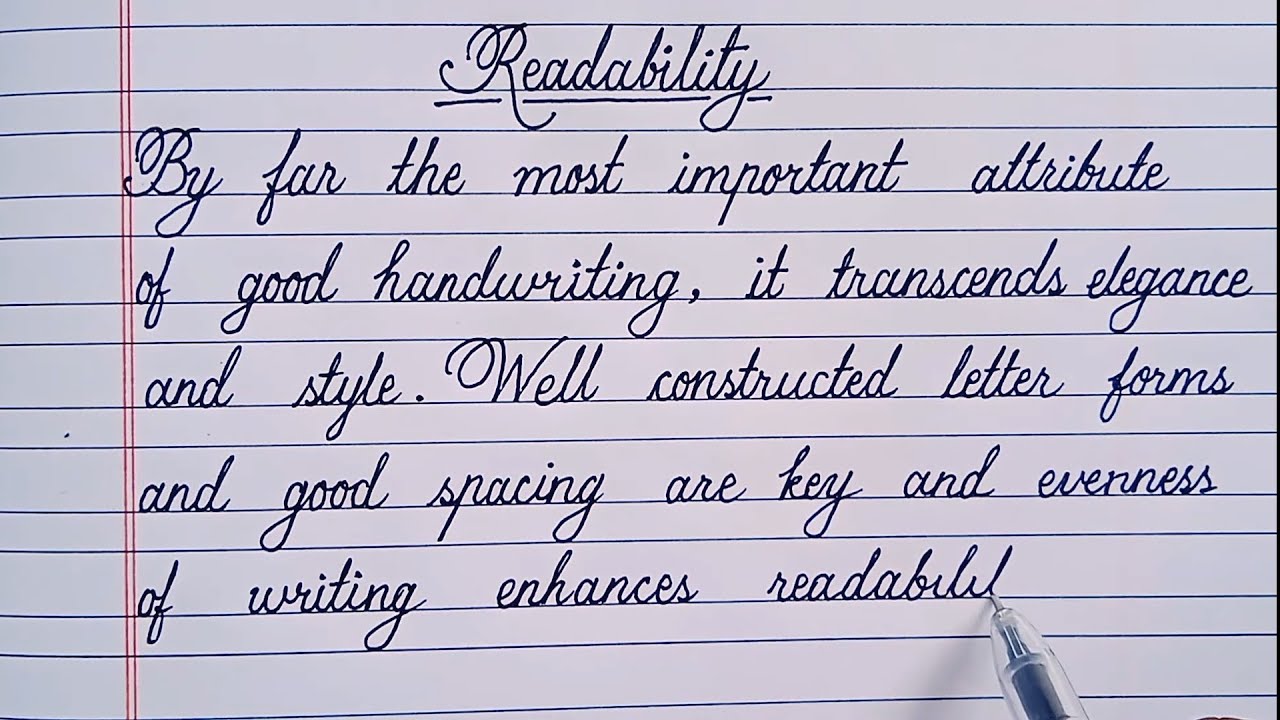 Readability
By far the most important attribute
of good handwriting, it transcends elegance
and style. Well constructed letter forms
and good spacing are key and evenness
of writing enhances